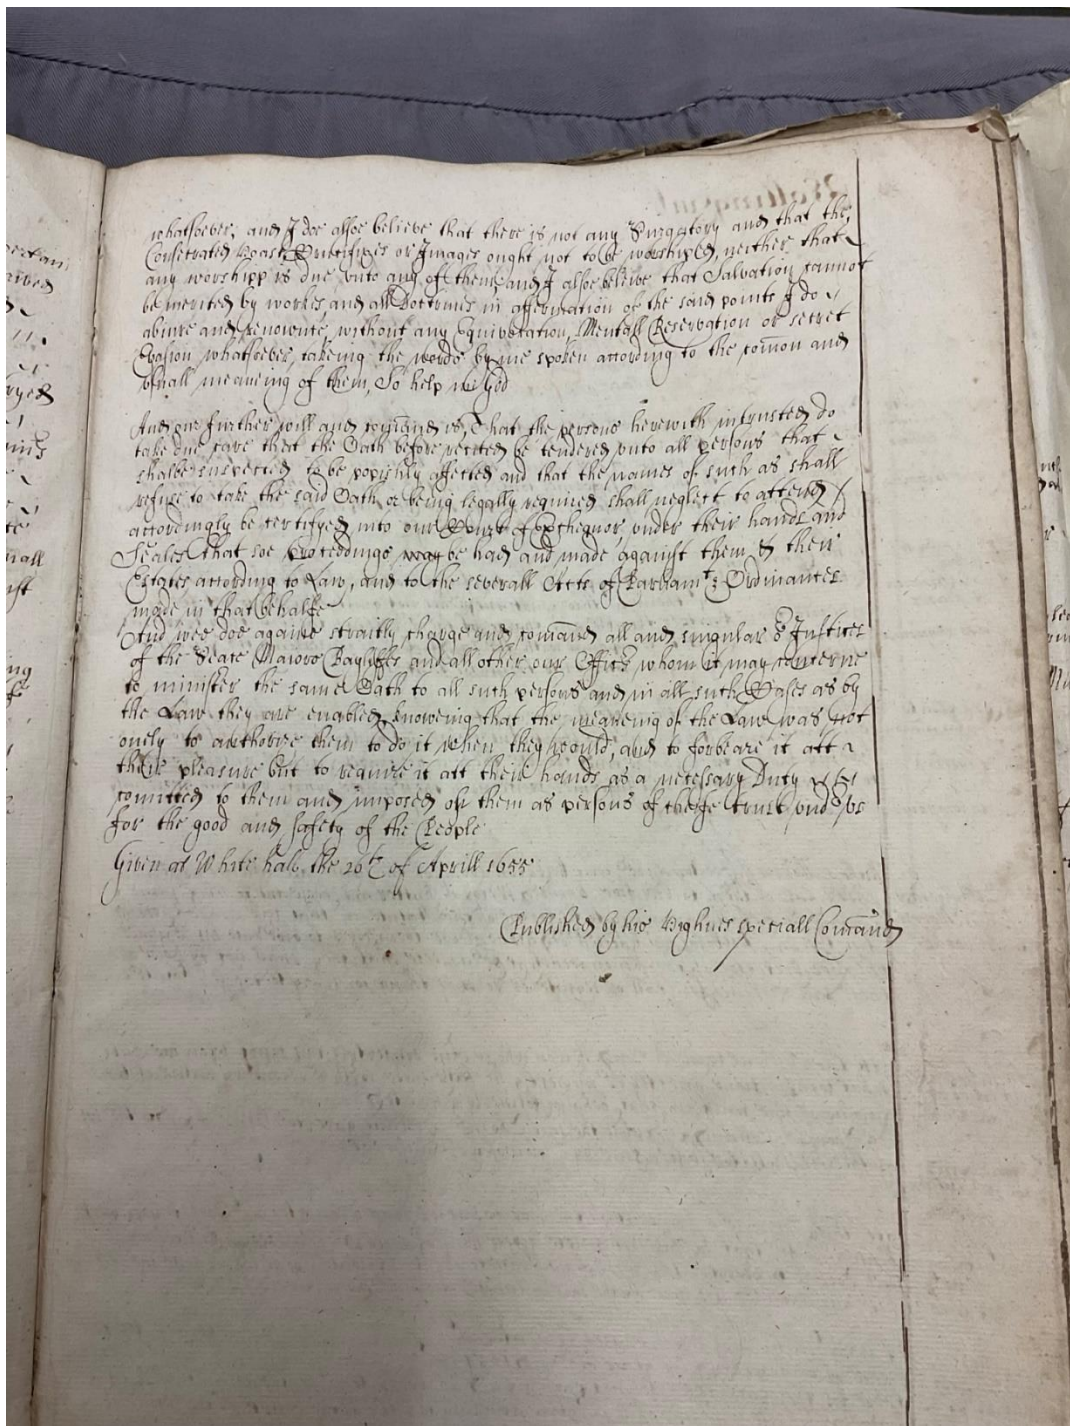 whatsoever, and I doe alsoe believe that there is not any Purgatory and that the
Consecrated hoast Crucifixes or Images ought not to be worshiped, neither that
any worshipp is due unto any of them, and I alsoe beleive that Salvation cannot
be merited by workes, and all Doctrines in affermation of the said points I do
abiure and Renounce, without any Equivocation, Mentall Reservation or secret
Evasion whatsoever, takeing the words by me spoken according to the com̄on and
usuall meaneing of them, So help me God
And our further will and com̄and is, That the persons herewith intrusted do
take due care that the Oath before recited be tendered unto all persons that
shalbe suspected to be popishly affected and that the names of such as shall
refuse to take the said Oath or being legally required shall neglect to attend
accordingly be certifyed into our Court of Exchequor, under their hands and
Seales that soe Proceedings may be had and made against them & their
Estates according to Law, and to the severall Acts of Parliamt & Ordinances
made in that behalfe
And wee doe againe straitly charge and com̄and all and singular Justices
of the Peace Maiors Bayliffes and all other our Officrs whom it may concerne
to minister the same Oath to all such persons and in all such Cases as by
the Law they are enabled, knoweing that the meaneing of the Law was not
onely to authorize them to do it when they would, and to forbeare it att
their pleasure but to require it att their hands as a necessary Duty
com̄itted to them and imposed on them as persons of trust undr us
for the good and safety of the People
Given at White hall the 26th of Aprill 1655
Published by his Highnes speciall Com̄and